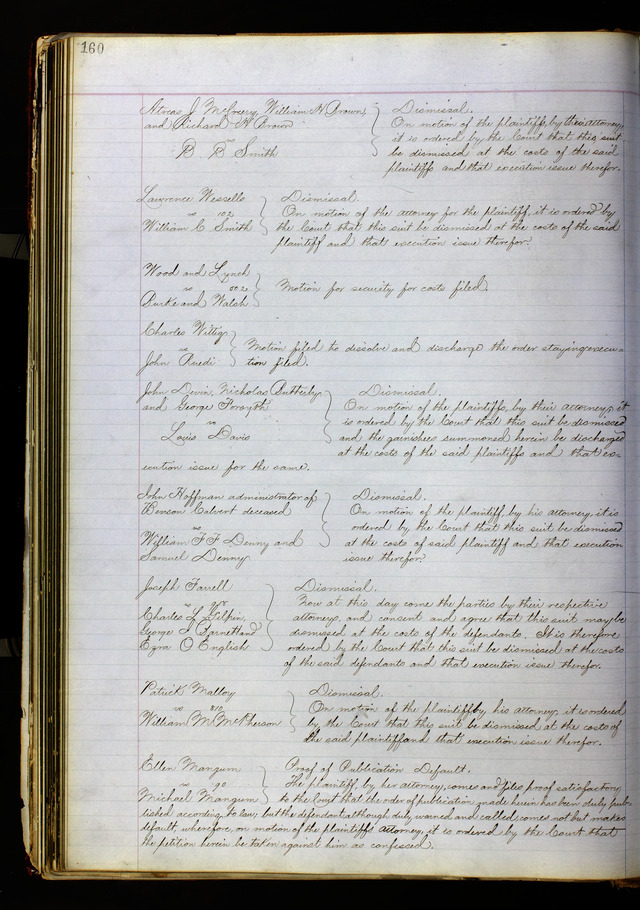 160
Dismissal.
William H Brown, On motion of the plaintiffs, by their attorney,
and Richard H Brown it is ordered by the Court that this suit
vs
B. B. Smith be dismissed at the costs of the said
plaintiffs and that execution issue therefor.
Lawrence Wessells Dismissal.
vs 102 On motion of the attorney for the plaintiff, it is ordered by
William C Smith the Court that this suit be dismissed at the costs of the said
plaintiff and that execution issue therefor.
Wood and Lynch
vs Motion for security for costs filed.
Burke and Walsh
Charles Wittig
vs Motion filed to dissolve and discharge the order staying execu-
John Ruedi tion filed.
John Devin, Nicholas Butterly Dismissal.
and George Forsyth On motion of the plaintiffs, by their attorney, it
vs is ordered by the Court that this suit be dismissed
Louis Davis and the garnishees summoned herein be discharged
at the costs of the said plaintiffs and that ex-
ecution issue for the same.
John Hoffman administrator of Dismissal.
Benson Calvert deceased On motion of the plaintiff by his attorney, it is
vs ordered by the Court that this suit be dismissed
William F F Denny and at the costs of said plaintiff and that execution
Samuel Denny issue therefor.
Joseph Farrell Dismissal.
vs Now at this day come the parties by their respective
Charles L Gilpin, attorneys, and consent and agree that this suit may be
George dismissed at the costs of the defendants. It is therefore
Ezra O English ordered by the Court that this suit be dismissed at the costs
of the said defendants and that execution issue therefor.
Patrick Malloy Dismissal.
vs 810 On motion of the plaintiff by his attorney, it is ordered
William M. McPherson by the Court that this suit be dismissed at the costs of
the said plaintiff and that execution issue therefor.
Ellen Mangum Proof of Publication Default.
vs 90 The plaintiff, by her attorney, comes and files proof satisfactory
Michael Mangum to the Court that the order of publication made herein has been duly pub-
lished according to law; but the defendant, although duly warned and called, comes not but makes
default, wherefore, on motion of the plaintiff's attorney, it is ordered by the Court that
the petition herein be taken against him as confessed.